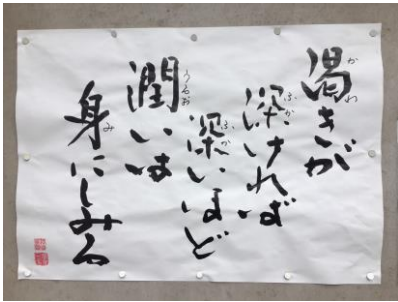 渇きが
深ければ
深いほど
潤いは
身にしみる